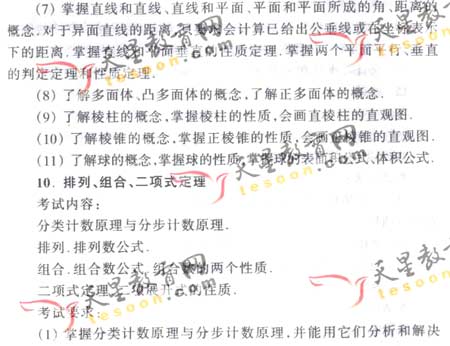 (7) 掌握直线和直线、直线和平面、平面和平面所成的角、距离的
概念.对于异面直线的距离,只要求会计算已给出公垂线或在坐标表示
下的距离.掌握直线和平面垂直的性质定理.掌握两个平面平行、垂直
的判定定理和性质定理.
(8) 了解多面体、凸多面体的概念,了解正多面体的概念.
(9) 了解棱柱的概念,掌握棱柱的性质,会画直棱柱的直观图.
(10) 了解棱锥的概念,掌握正棱锥的性质,会画正棱锥的直观图.
(11) 了解球的概念,掌握球的性质,掌握球的表面积公式、体积公式.
10. 排列、组合、二项式定理
考试内容:
分类计数原理与分步计数原理.
排列.排列数公式.
组合.组合数公式.组合数的两个性质.
二项式定理.二项展开式的性质.
考试要求:
(1) 掌握分类计数原理与分步计数原理,并能用它们分析和解决
天星教育网
tesoon.com
天星教育网
tesoon.com
天星教
tesoon
天星教育网
tesoon.com
天星教
tesoon